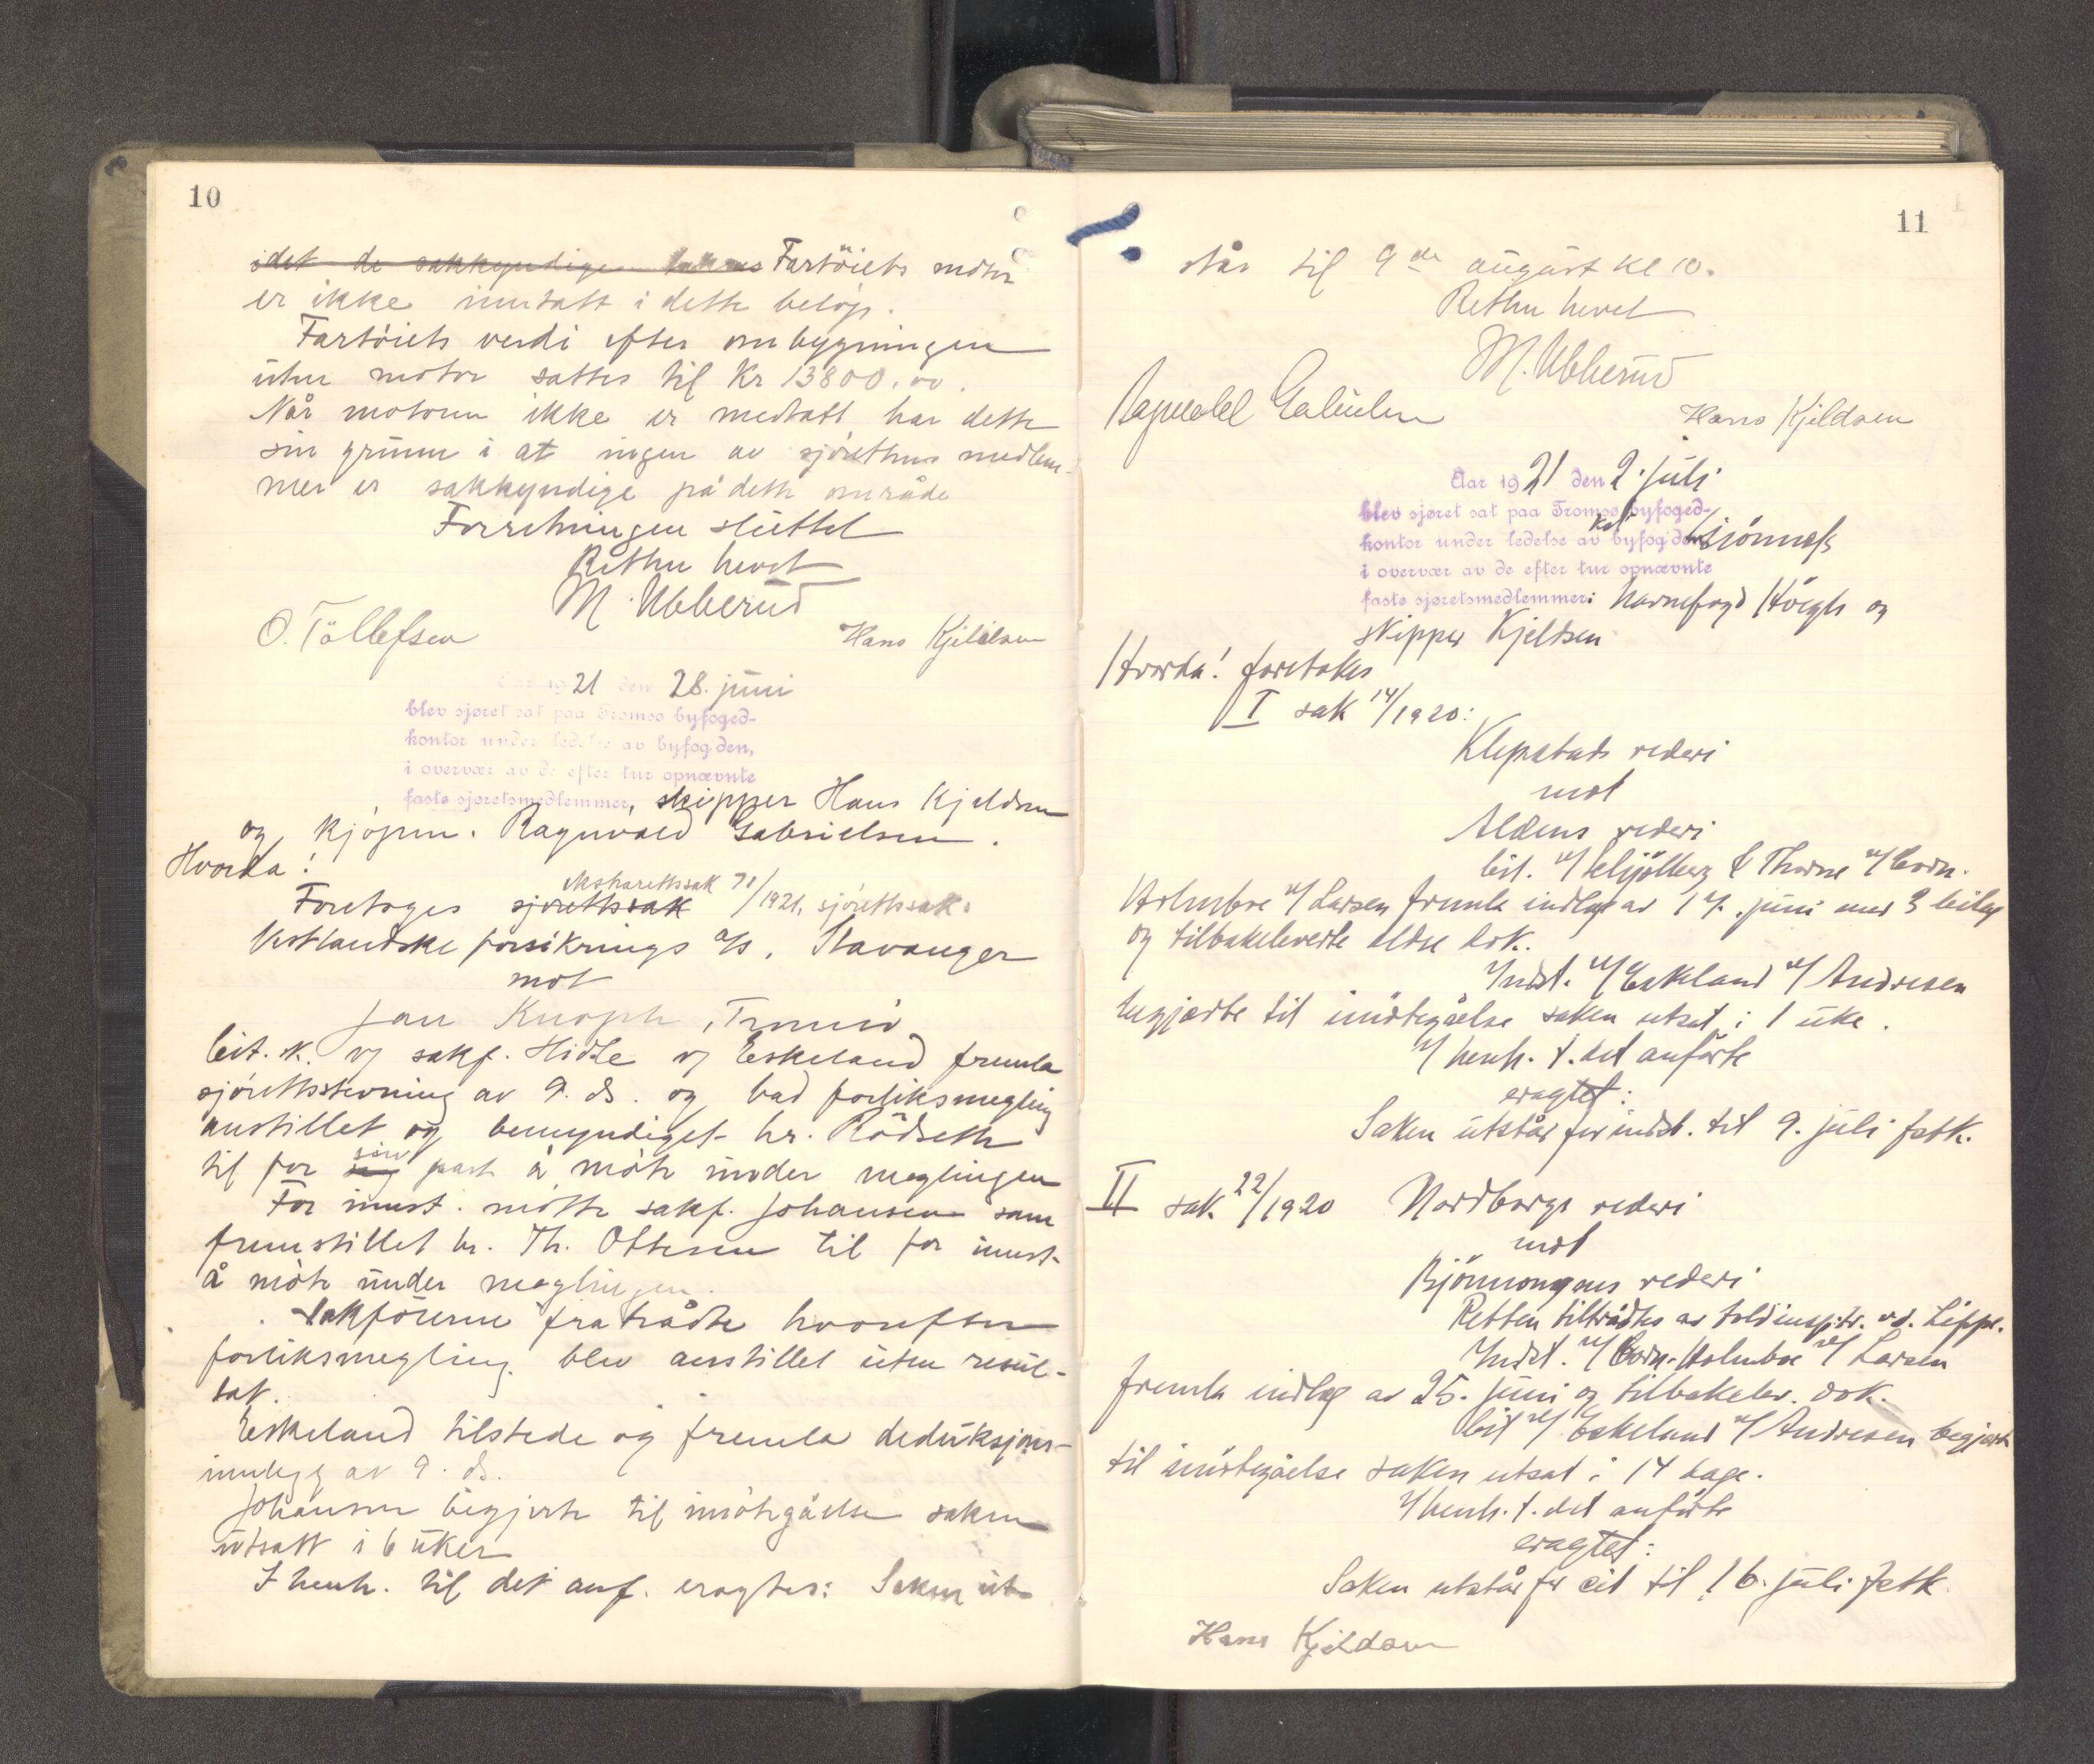 10
idet de sakkyndige Fartöiets motor
er ikke inntatt i dette beløp.
Fartöiets verdi efter ombygningen
uten motor sattes til Kr 13800.00.
Når motoren ikke er medtatt, har dette
sin grunn i at ingen av sjörettens medlem-
mer er sakkyndige på dette område
Forretningen sluttet
Retten hevet
M. Ubberud
O. Tollefsen Hans Kjeldsen
Aar 1921 den 28. juni
blev sjøret sat paa Tromsø byfoged-
kontor under ledelse av byfogden,
i overvær av de efter tur opnævnte
faste sjøretsmedlemmer, skipper Hans Kjeldsen
og kjöpm. Ragnvald Gabrielsen.
Hvorda!
ekstrarettssak
Foretoges sjørettssak 71/1921, sjörettssak:
Vestlandske forsikrings a/s, Stavanger
mot
Jan Knoph, Tromsö
Cit. v/ sakf. Hidle v/ Eskeland fremla
sjörettsstevning av 9. ds. og bad forliksmegling
anstillet og bemyndiget hr. Rödseth
sin
til for sig part å möte under meglingen
For innst. mötte sakf. Johansen som
fremstillet hr. Th. Ottesen til for innst.
å möte under meglingen.
Sakförerne fratrådte hvorefter
forliksmegling blev anstillet uten resul-
tat.
Eskeland tilstede og fremla deduksjons-
innlegg av 9. ds.
Johansen begjærte til imötegåelse saken
utsatt i 6 uker
I henh. til det anf. eragtes: Saken ut-
11
står til 9de august kl 10.
Retten hevet
M. Ubberud
Ragnvald Gabrielsen Hans Kjeldsen
Aar 1921 den 2. juli
blev sjøret sat paa Tromsø byfoged-
kst.
kontor under ledelse av byfogden Sjönnes
i overvær av de efter tur opnævnte
faste sjøretsmedlemmer: havnefogd Höegh og
skipper Kjeldsen
Hvorda! foretokes
I sak 14/1920:
Klepstads rederi
mot
Aldens rederi
Cit. v/ Schjölberg & Thorne v/ Corn.
Holmboe v/ Larsen fremla indlæg av 17. juni med 3 bilag
og tilbakeleverte eldre dok.
Indst. v/ Eskeland v/ Andresen
begjærte til imötegåelse saken utsat i 1 uke.
I henh. t. det anförte
eragtet:
Saken utstår for indst. til 9. juli fstk.
II sak 22/1920 Nordborgs rederi
mot
Björnungens rederi
Retten tiltrådtes av toldinsptr. v.d. Lippe.
Indst. v/ Corn. Holmboe v/ Larsen
fremla indlæg av 25. juni og tilbakelev. dok.
Cit v/ Eskeland v/ Andresen begjærte
til imötegåelse saken utsat i 14 dage.
I henh. t. det anförte
eragtet:
Saken utstår for cit til 16. juli fstk.
Hans Kjeldsen